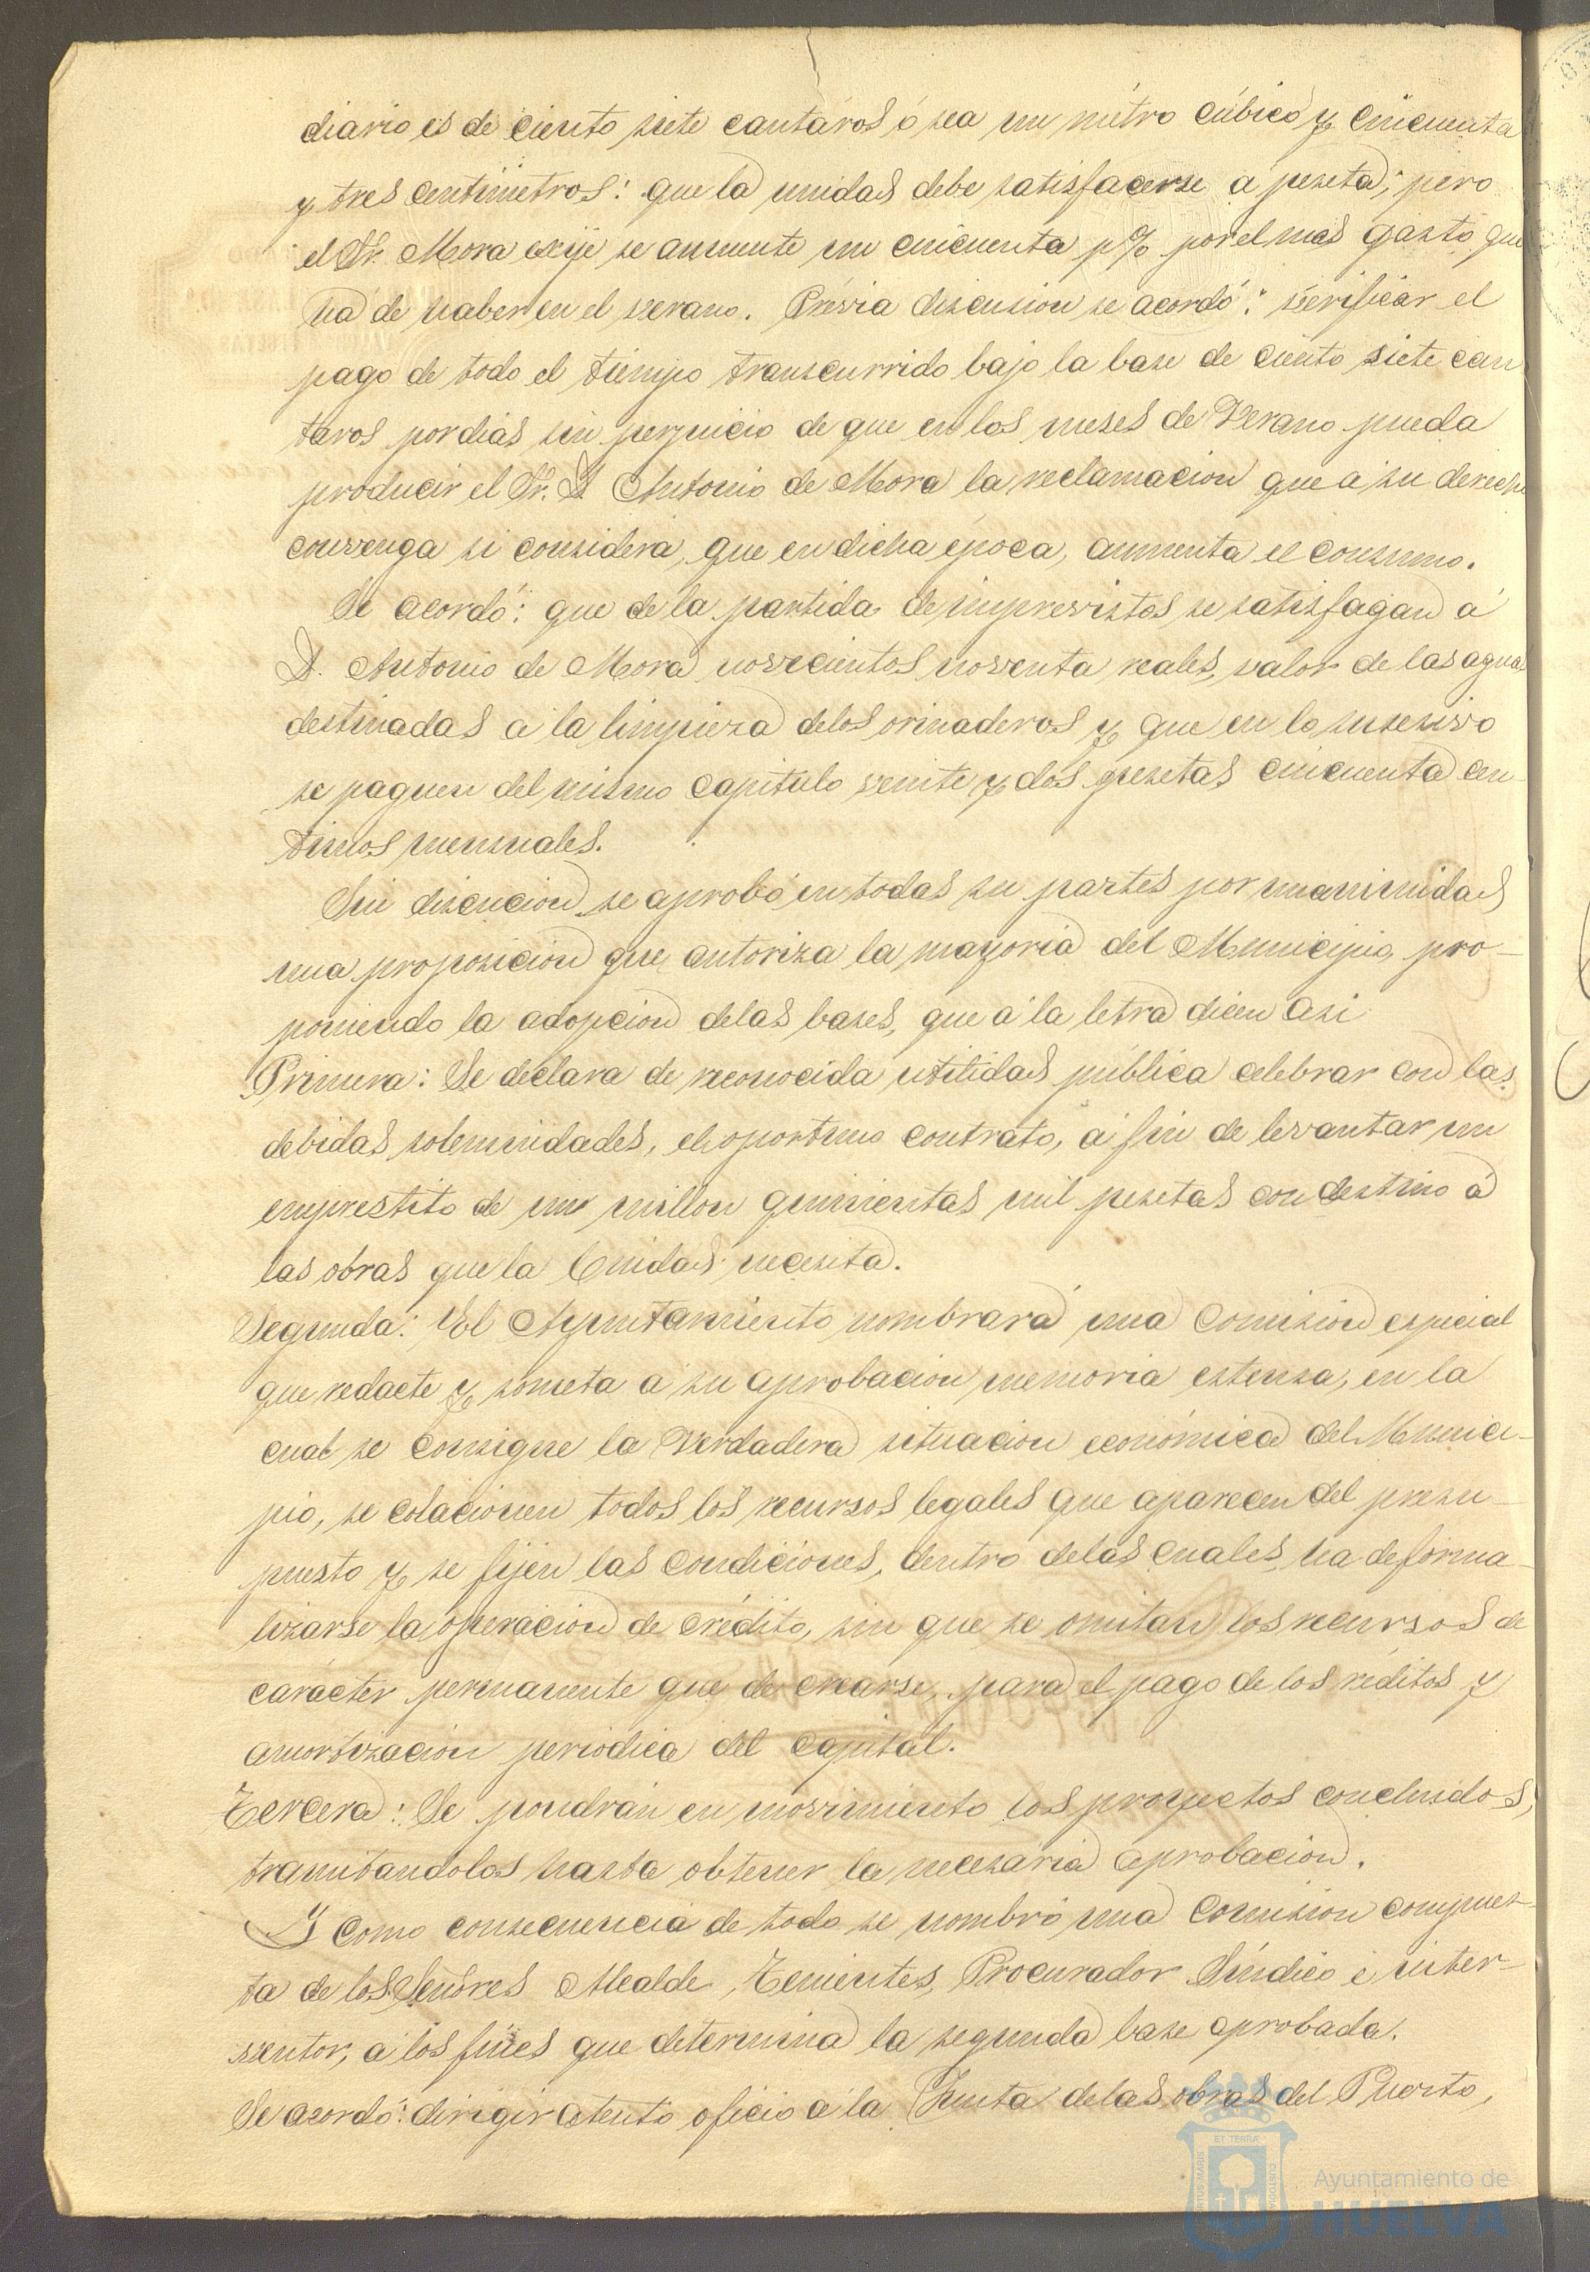 diario es de ciento siete cantaros ó sea un métro cúbico y cincuenta
y tres centimetros: que la unidad debe satisfacerse a peseta; pero
el Sr. Mora exije se aumente un cincuenta p% por el mas gasto que
ha de haber en el verano. Prévia discusion se acordó: verificar el
pago de todo el tiempo transcurrido bajo la base de ciento siete can
taros por dias sin perjuicio de que en los meses de Verano pueda
producir el Sr. D Antonio de Mora la reclamacion que a su derecho
convenga si considera, que en dicha época, aumenta el consumo.
Se acordó: que de la partida de imprevistos se satisfagan á
D. Antonio de Mora novecientos noventa reales, valor de las aguas
destinadas a la limpieza delos orinaderos y que en lo susesivo
se paguen del mismo capitulo veinte y dos pesetas cincuenta cen
timos mensuales.
Sin discucion se aprobó en todas su partes por unanimidad
una proposicion que autoriza la mayoria del Municipio, pro-
poniendo la adopcion delas bases, que á la letra dicen asi
Primera: Se declara de reconocida utilidad pública celebrar con las
debidas solemnidades, el oportuno contrato, á fin de levantar un
emprestito de un millon quinientas mil pesetas con destino á
las obras que la Ciudad necesita.
Segunda: El Ayuntamiento nombrará una Comision especial
que redacte y someta a su aprobacion memoria estensa, en la
cual se consigne la verdadera situacion económica del Munici-
pio, se colacionen todos los recursos legales que aparecen del presu-
puesto y se fijen las condiciones, dentro delas cuales, ha de forma-
lizarse la operacion de crédito, sin que se omitan los recursos de
carácter permanente que de crearse, para el pago de los réditos y
amortizacion periodica del capital.
Tercera: Se pondrán en movimiento los proyectos concluidos,
tramitandolos hasta obtener la necesaria aprobacion.
Y como consecuencia de todo se nombró una Comision compues-
ta de los Señores Alcalde, Tenientes, Procurador Síndico é inter-
ventor, á los fines que determina la segunda base aprobada.
Se acordó: dirigir atento oficio á la Junta delas obras del Puerto,
Ayuntamiento de
HUELVA